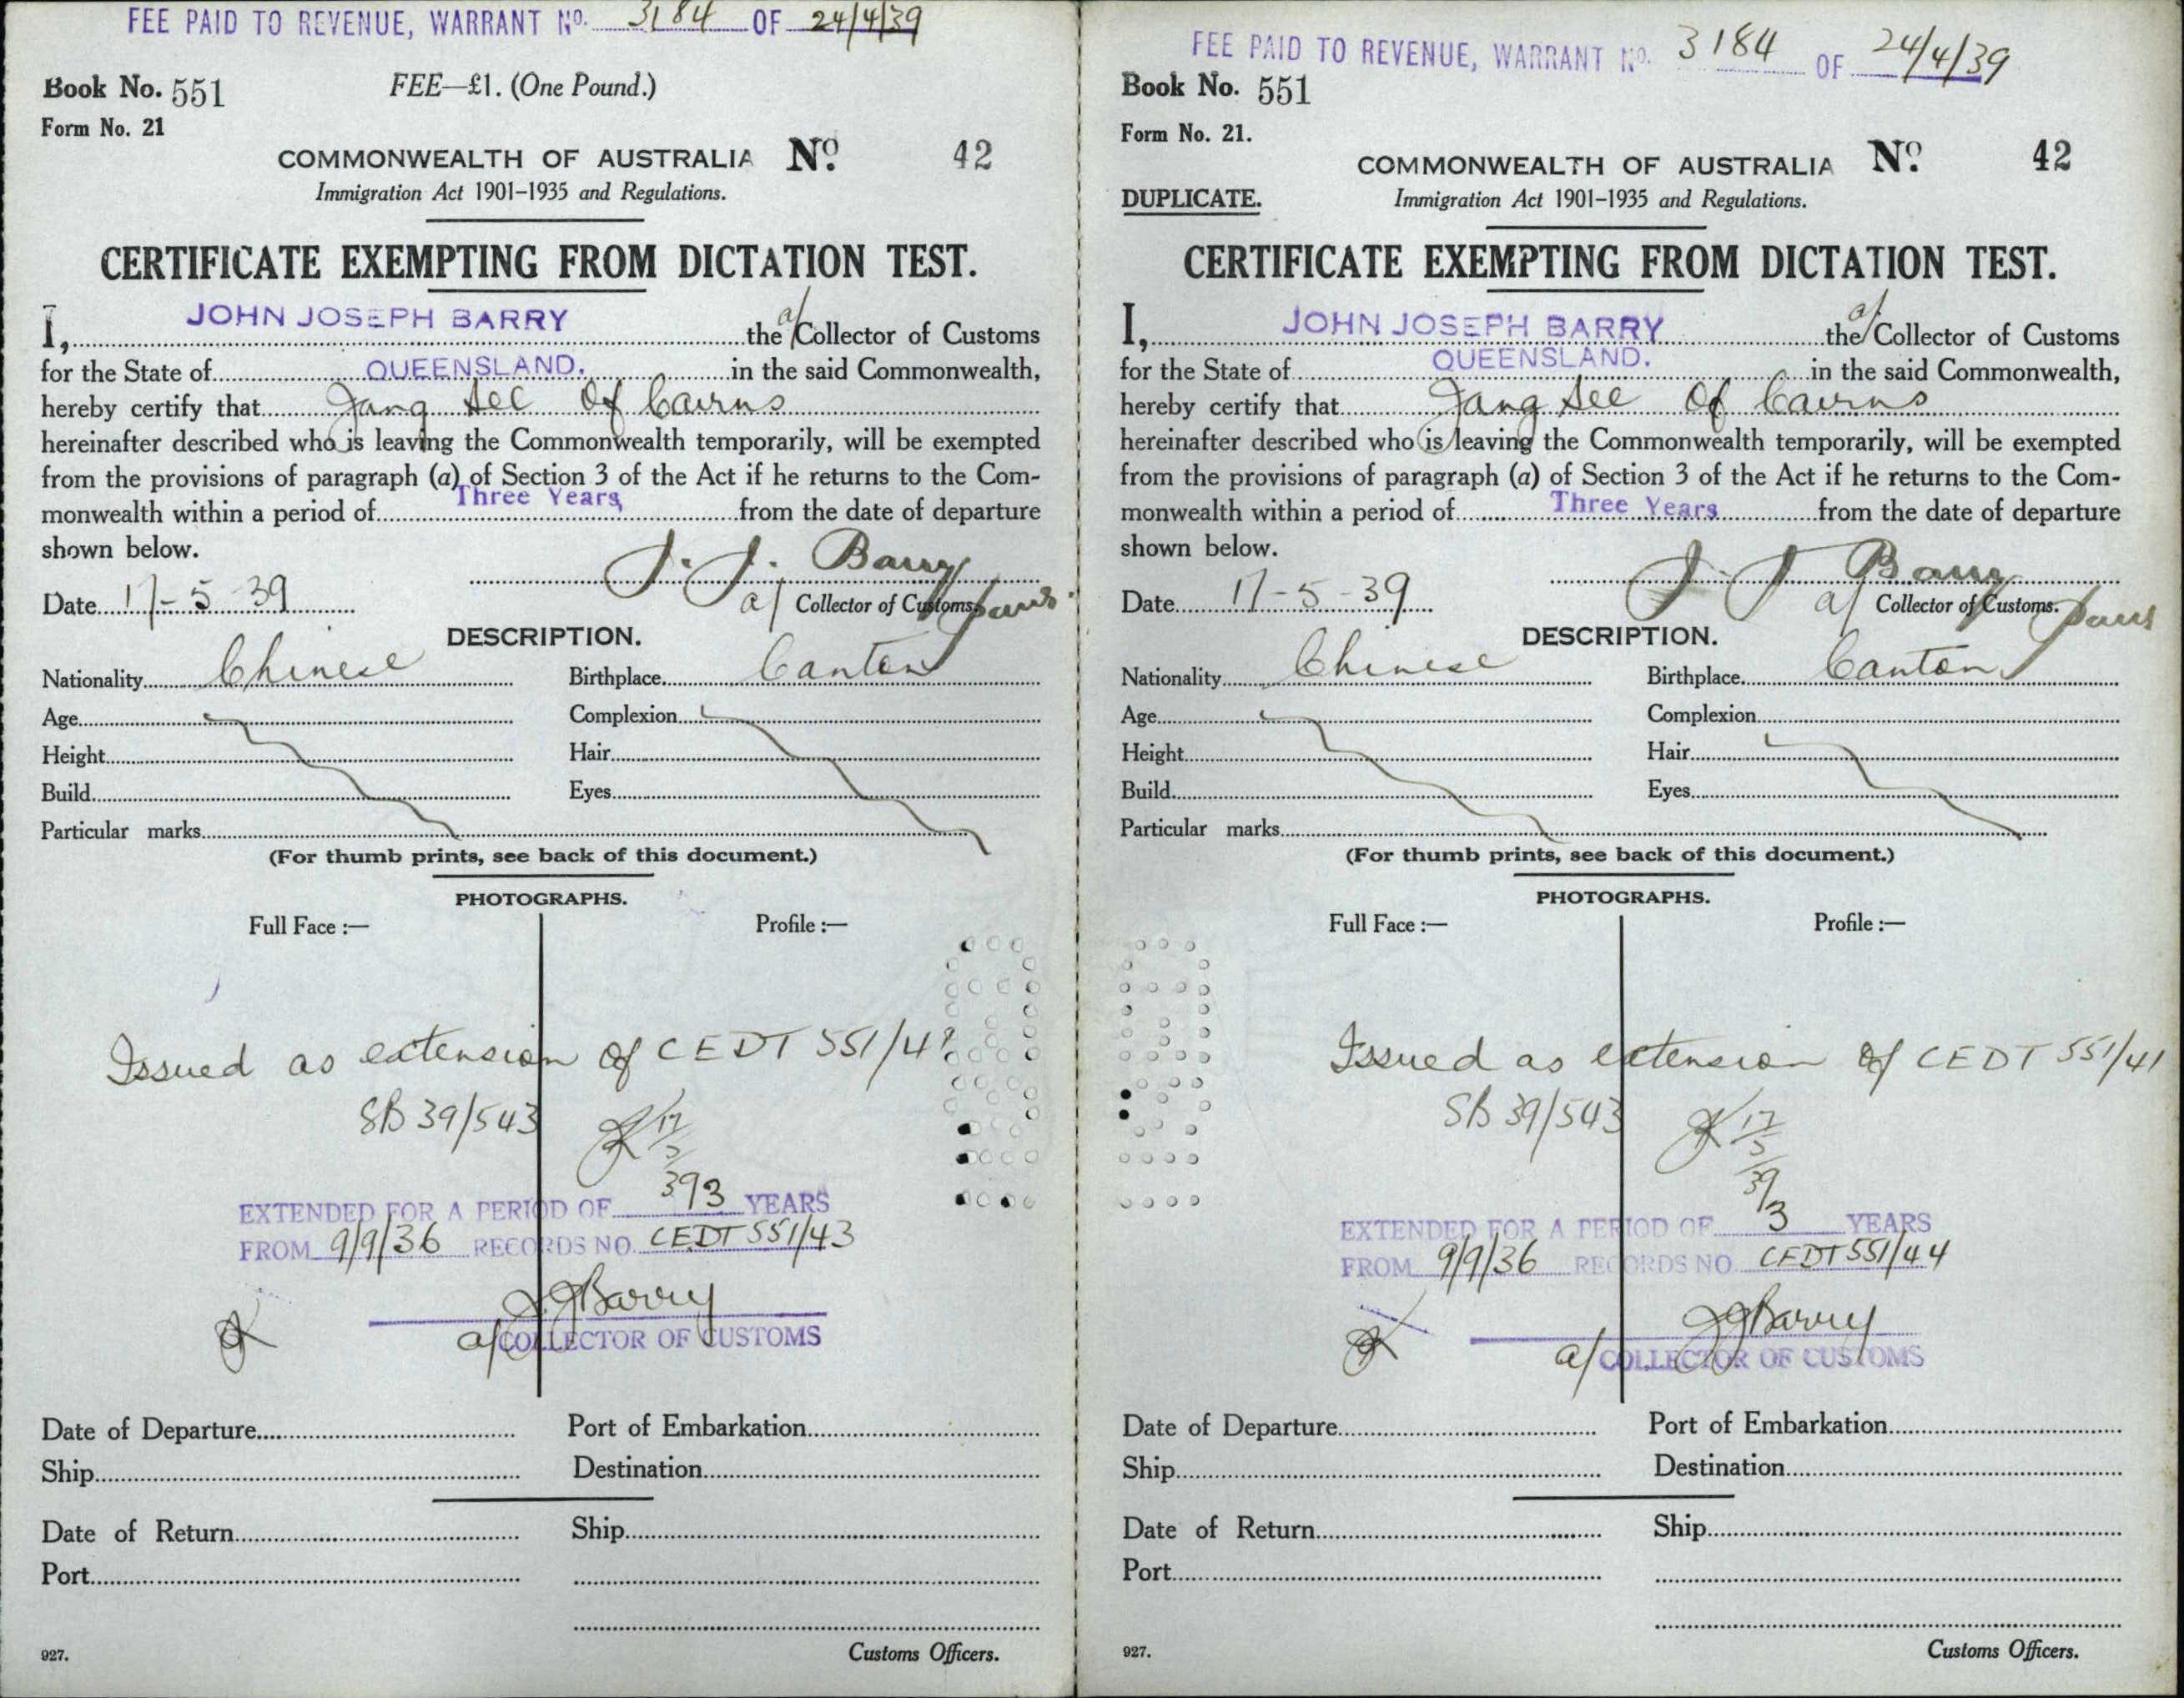 FEE PAID TO REVENUE, WARRANT No. 3184 OF 24/4/39
Book No. 551
FEE—£1. (One Pound.)
Form No. 21
COMMONWEALTH OF AUSTRALIA No. 42
Immigration Act 1901–1935 and Regulations.
CERTIFICATE EXEMPTING FROM DICTATION TEST.
I, JOHN JOSEPH BARRY the a/ Collector of Customs
for the State of QUEENSLAND. in the said Commonwealth,
hereby certify that Jang See Of Cairns
hereinafter described who is leaving the Commonwealth temporarily, will be exempted
from the provisions of paragraph (a) of Section 3 of the Act if he returns to the Com-
monwealth within a period of Three Years from the date of departure
shown below.
J. J. Barry
Date 17-5-39 a/ Collector of Customs.
DESCRIPTION.
Nationality Chinese Birthplace Canton
Age Complexion
Height Hair
Build Eyes
Particular marks
(For thumb prints, see back of this document.)
PHOTOGRAPHS.
Full Face :— Profile :—
Issued as extension of CEDT 551/41
SB 39/543
17/5/39
EXTENDED FOR A PERIOD OF 3 YEARS
FROM 9/9/36 RECORDS NO. CEDT 551/43
J J Barry
a/ COLLECTOR OF CUSTOMS
Date of Departure Port of Embarkation
Ship Destination
Date of Return Ship
Port
927. Customs Officers.
FEE PAID TO REVENUE, WARRANT No. 3184 OF 24/4/39
Book No. 551
Form No. 21.
COMMONWEALTH OF AUSTRALIA No. 42
DUPLICATE. Immigration Act 1901–1935 and Regulations.
CERTIFICATE EXEMPTING FROM DICTATION TEST.
I, JOHN JOSEPH BARRY the a/ Collector of Customs
for the State of QUEENSLAND. in the said Commonwealth,
hereby certify that Jang See Of Cairns
hereinafter described who is leaving the Commonwealth temporarily, will be exempted
from the provisions of paragraph (a) of Section 3 of the Act if he returns to the Com-
monwealth within a period of Three Years from the date of departure
shown below.
J J Barry
Date 17-5-39 a/ Collector of Customs.
DESCRIPTION.
Nationality Chinese Birthplace Canton
Age Complexion
Height Hair
Build Eyes
Particular marks
(For thumb prints, see back of this document.)
PHOTOGRAPHS.
Full Face :— Profile :—
Issued as extension of CEDT 551/41
SB 39/543
17/5/39
EXTENDED FOR A PERIOD OF 3 YEARS
FROM 9/9/36 RECORDS NO. CEDT 551/44
J J Barry
a/ COLLECTOR OF CUSTOMS
Date of Departure Port of Embarkation
Ship Destination
Date of Return Ship
Port
927. Customs Officers.